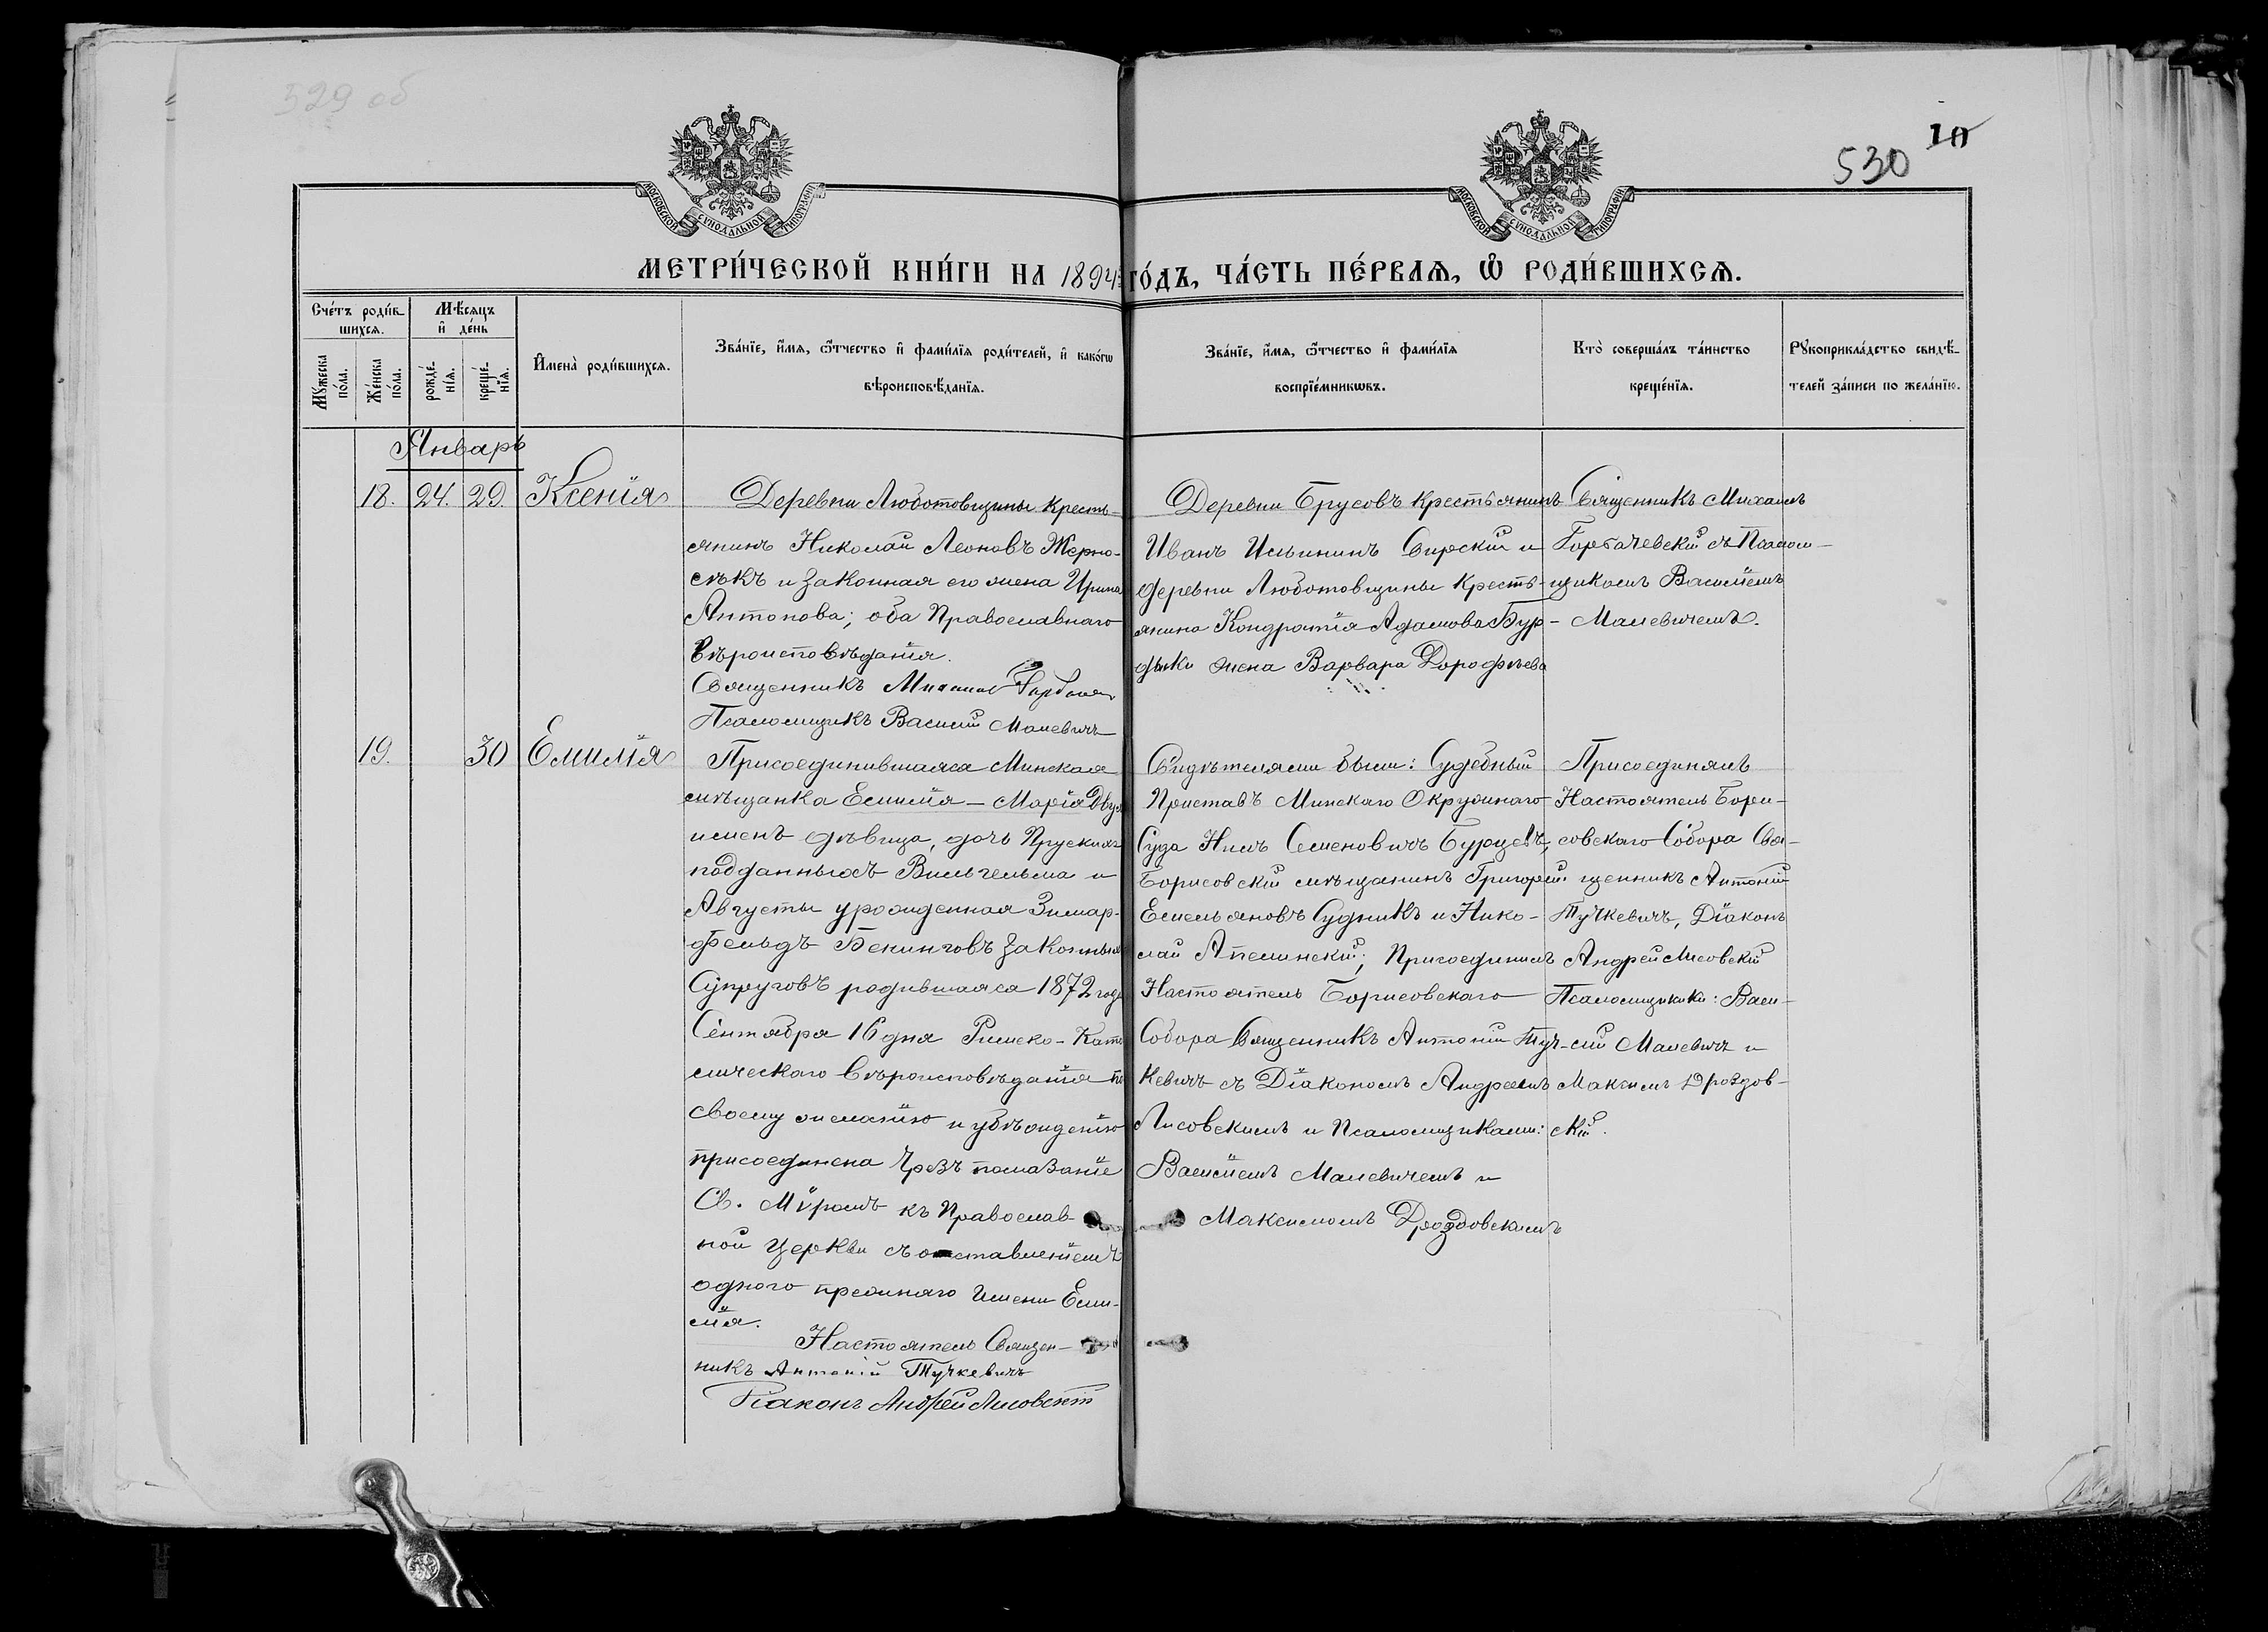 529 об
10
530
МОСКОВСКОЙ СѴНОДАЛЬНОЙ ТИПОГРАФІИ
МОСКОВСКОЙ СѴНОДАЛЬНОЙ ТИПОГРАФІИ
МЕТРИ́ЧЕСКОЙ КНИ́ГИ НА 1894 ГО́ДЪ, ЧА́СТЬ ПЕ́РВАѦ, Ѡ РОДИ́ВШИХСѦ.
Сче́тъ роди́в
шихсѧ.
Мꙋ́жеска
по́ла.
Же́нска
по́ла.
Мѣ́сѧцъ
и҆ де́нь
рожде́-
нїѧ.
креще́-
нїѧ.
И҆мена̀ роди́вшихсѧ.
Зва́нїе, и҆́мѧ, ѻ҆́тчество и҆ фами́лїѧ роди́телей, и҆ како́гѡ
вѣроисповѣ́данїѧ.
Зва́нїе, и҆́мѧ, ѻ҆́тчество и҆ фами́лїѧ
воспрїе́мникѡвъ.
Кто̀ соверша́лъ та́инство
креще́нїѧ.
Рꙋкоприкла́дство свидѣ́-
телей за́писи по жела́нїю.
Январь
18. 24. 29. Ксенія
Деревни Люботовщины кресть-
янинъ Николай Леоновъ Жерно-
сѣкъ и законная его жена Ирина
Антонова; оба Православнаго
вѣроисповѣданія.
Священникъ Михаил Горбачев
Псаломщикъ Василій Малевичъ
Деревни Брусовъ крестьянинъ
Иванъ Ильининъ Сирскій и
деревни Люботовщины кресть-
янина Кондратія Адамова Бур-
дыки жена Варвара Дорофѣева
Священникъ Михаилъ
Горбачевскій съ Псалом-
щикомъ Василіемъ
Малевичемъ.
19. 30 Емилія
Присоединившаяся Минская
мѣщанка Емилія - Марія Двух
именъ дѣвица, дочь Прускихъ
подданныхъ Вильгельма и
Августы урожденная Зимар-
фельдъ Бенинговъ законныхъ
Супруговъ родившаяся 1872 года
Сентября 16 дня Римско-Като
лическаго вѣроисповѣданія по
своему желанію и убѣжденію
присоединена чрезъ помазаніе
Св. Мѵромъ къ Православ-
ной Церкви съ оставленіемъ
одного прежняго Имени Еми-
лія.
Настоятель Священ-
никъ Антоній Тучкевичъ
Діаконъ Андрей Лисовскій
Свидѣтелями были: Судебный
Приставъ Минскаго Окружнаго
Суда Нилъ Семеновичъ Бурцевъ,
Борисовскій мѣщанинъ Григорій
Емельяновъ Судникъ и Нико-
лай Апелинскій; Присоединилъ
Настоятель Борисовскаго
Собора Священникъ Антоній Туч-
кевичъ съ Діакономъ Андреемъ
Лисовскимъ и Псаломщиками:
Василіемъ Малевичемъ и
Максимомъ Дроздовскимъ
Присоединялъ
Настоятель Бори-
совскаго Собора Свя-
щенникъ Антоній
Тучкевичъ, Діаконъ
Андрей Лисовскій
Псаломщики: Васи-
лій Малевичъ и
Максимъ Дроздов-
скій.